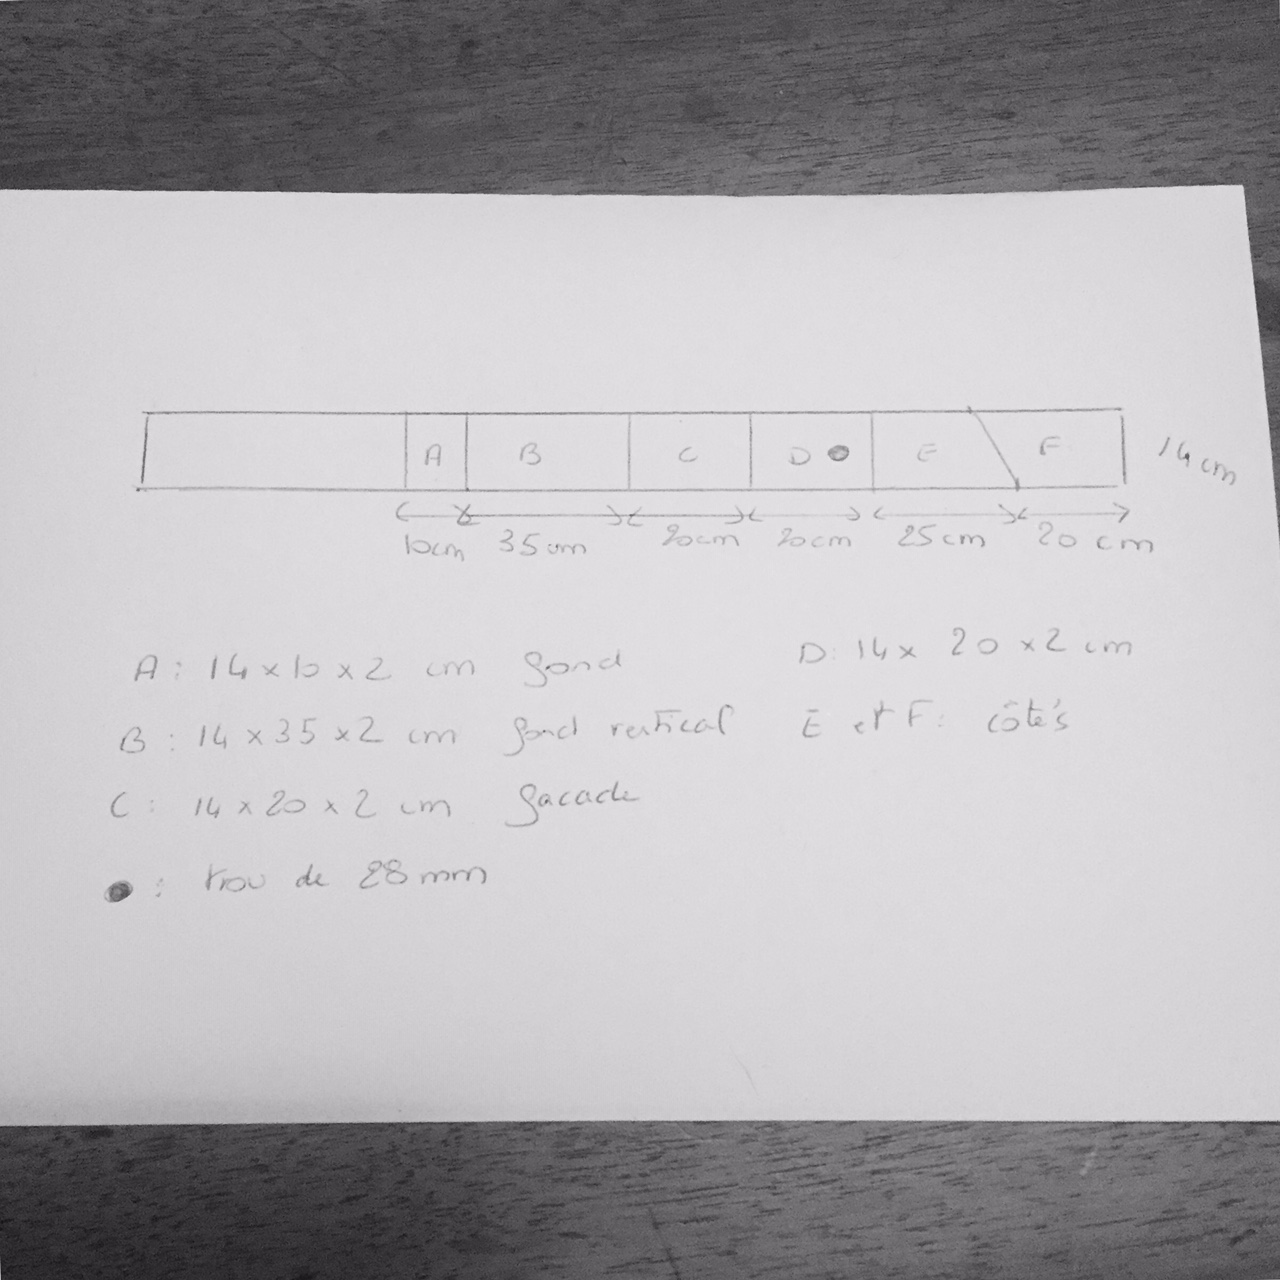 A B C D E F 14 cm
10cm 35 cm 20cm 20cm 25 cm 20 cm
A : 14 x 10 x 2 cm fond
B : 14 x 35 x 2 cm fond vertical
C : 14 x 20 x 2 cm facade
: trou de 28 mm
D : 14 x 20 x 2 cm
E et F : côtés